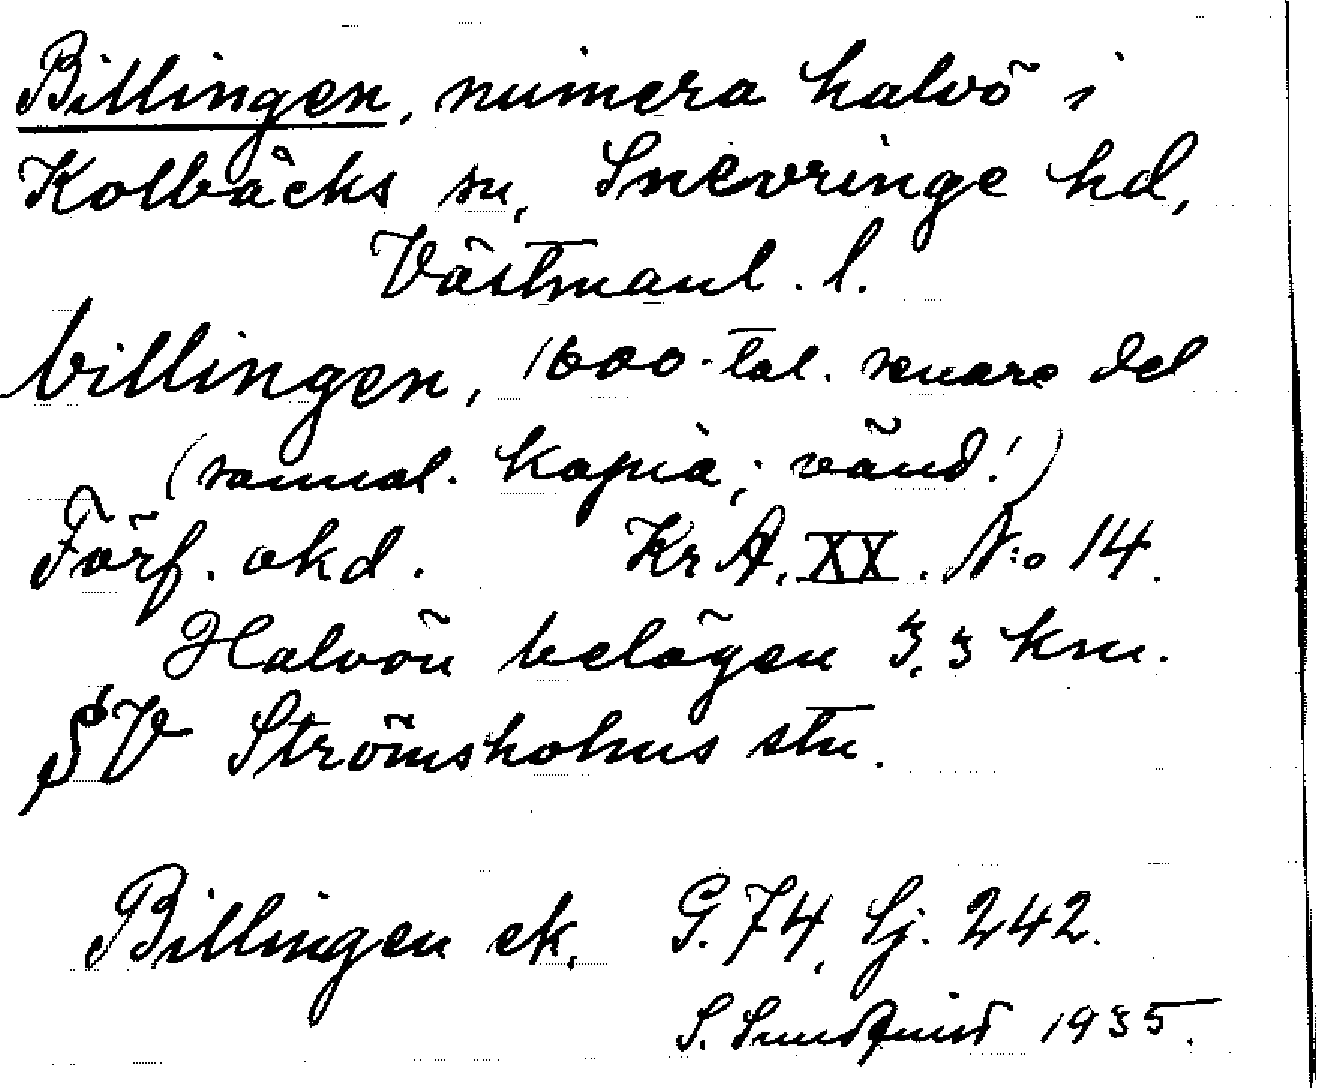 Billingen, numera halvö i
Kolbäcks sn, Snevringe hd,
Västmanl. l.
billingen, 1600-tal. senare del
(samal. kopia; vänd!)
Förf. okd. KrA. XX. N:o 14.
Halvön belägen 3,3 km.
SV Strömsholms stn.
Billingen ek. G. 74, Lj. 242.
S. Sundquist 1935.